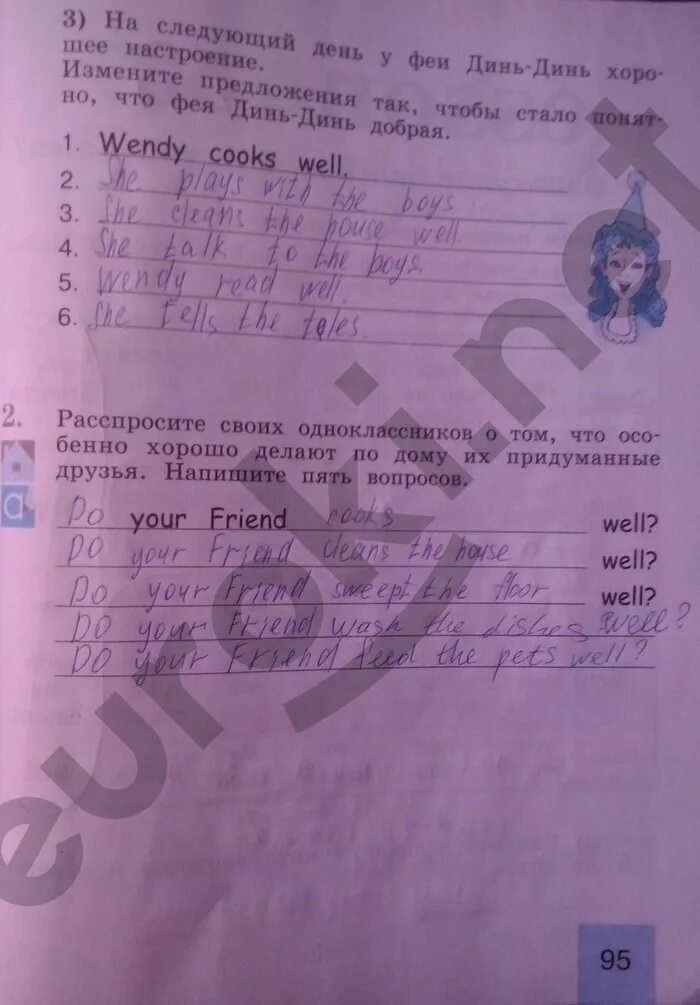 3) На следующий день у феи Динь-Динь хоро-
шее настроение.
Измените предложения так, чтобы стало понят-
но, что фея Динь-Динь добрая.
1. Wendy cooks well.
2. She plays with the boys
3. She cleans the house well
4. She talk to the boys.
5. Wendy read well.
6. She tells the tales
2. Расспросите своих одноклассников о том, что осо-
бенно хорошо делают по дому их придуманные
друзья. Напишите пять вопросов.
Do your Friend cooks well?
DO your Friend cleans the house well?
Do your Friend sweept the floor well?
DO your Friend wash the dishes well?
DO your Friend feed the pets well?
95
euroki.net